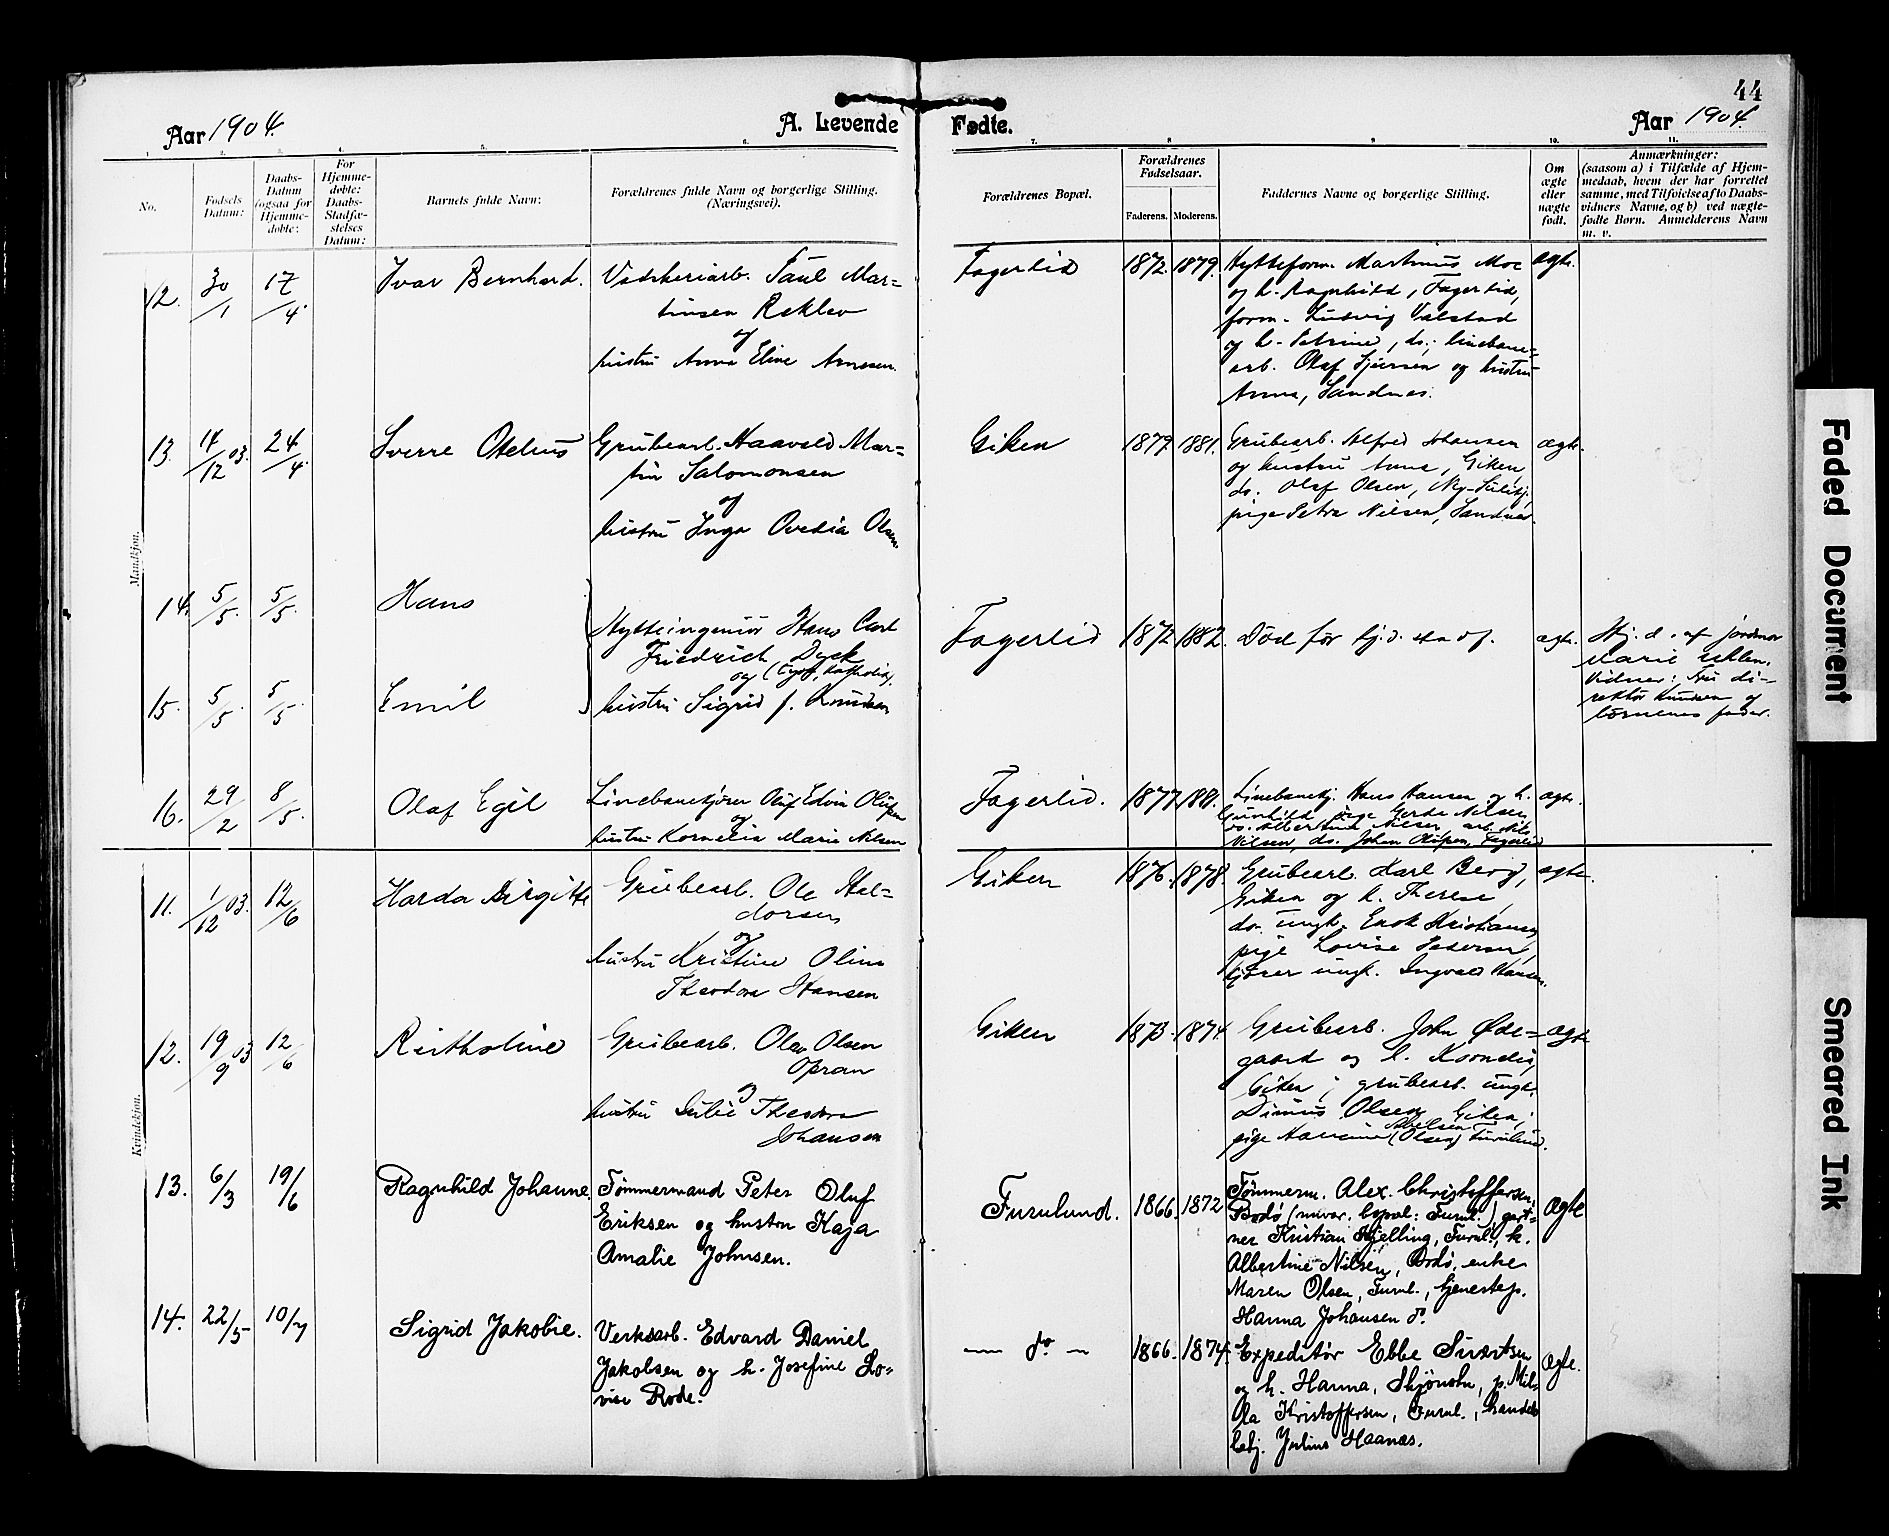 44
Aar 1904.
A. Levende
Fødte.
Aar 1904.
1.
2.
3.
4.
5.
6.
7.
8.
9.
10.
11.
No.
Fødsels
Datum:
Daabs-
Datum
(ogsaa for
Hjemme-
døbte:
For
Hjemme-
døbte:
Daabs-
Stadfæ-
stelses
Datum:
Barnets fulde Navn:
Forældrenes fulde Navn og borgerlige Stilling.
(Næringsvei).
Forældrenes Bopæl.
Forældrenes
Fødselsaar.
Faderens.
Moderens.
Faddernes Navne og borgerlige Stilling.
Om
ægte
eller
uægte
født.
Anmærkninger:
(saasom a) i Tilfælde af Hjem-
medaab, hvem der har forrettet
samme, med Tilføielse af to Daabs-
vidners Navne, og b) ved uægte-
fødte Børn. Anmelderens Navn
m. v.
Mandkjøn.
12.
30/1
17/4.
Ivar Bernhard.
Vadskeriarb. Paul Mar=
tinsen Reklev
og
hustru Anna Eline Arnesen.
Fagerlid
1872.
1879.
Hytteform. Martinus Moe
og h. Ragnhild, Fagerlid,
form. Ludvig Valstad
og h. Petrine, ds.; linebane=
arb. Olaf Sjursen og hustru
Anna, Sandnes.
ægte.
13.
14/12 03.
24/4.
Sverre Otelius
Grubearb. Haavald Mar=
tin Salomonsen
og
hustru Inga Ovedia Olsen.
Giken
1879.
1881.
Grubearb. Alfred Johansen
og hustru Anna, Giken,
ds. Olaf Olsen, Ny-Sulitj.
pige Petra Nilsen, Sandnes.
ægte.
14.
5/5.
5/5.
Hans
Hytteingeniør Hans Carl
Friedrich Dyck
og (Tysk, katholik).
hustru Sigrid f. Knudsen
Fagerlid
1872.
1882.
Død før hj.d. sta df.
ægte.
Hj. d. af jordmor
Marie Uhlen.
Vidner: Fru di=
rektør Knudsen og
børnenes fader.
15.
5/5.
5/5.
Emil
16.
29/2
8/5.
Olaf Egil
Linebanekjører Oluf Edvin Olufsen
og
hustru Kornelia Marie Nilsen
Fagerlid.
1877.
1881.
Linebanekj. Hans Hansen og h.
Gunhild pige Gerda Nilsen
ds. Albertine Nilsen arb. Nils
Nilsen, ds. Johan Olufsen, Fagerlid
ægte.
Kvindekjøn.
11.
1/12 03.
12/6
Harda Birgitte
Grubearb. Ole Hal=
dorsen
og
hustru Kristine Oline
Theodora Hansen
Giken
1876.
1878.
Grubearb. Karl Berg,
Giken og h. Therese,
ds. ungk. Enok Kristiansen,
pige Lovise Pedersen,
kjører ungk. Ingvald Hansen.
ægte.
12.
19/9 03
12/6
Rutholine
Grubearb. Olav Olsen
Opran
og
hustru Julie Theodora
Johansen
Giken
1873.
1874.
Grubearb. John Øde=
gaard og h. Kornelia,
Giken; grubearb. ungk.
Dinius Olsen Giken;
Abelsen
pige Hansine (Olsen) Furulund.
ægte
13.
6/3
19/6
Ragnhild Johanne.
Tømmermand Peter Oluf
Eriksen og hustru Kaja
Amalie Johnsen.
Furulund.
1866.
1872
Tømmerm. Alex. Christoffersen,
Bodø (nuvær. bopæl: Furul.) gart=
ner Kristian Kjelling, Furul., h.
Albertine Nilsen, Bodø, enke
Maren Olsen, Furul., tjenestep.
Hanna Johansen do.
Ægte
14.
22/5
10/7
Sigrid Jakobie.
Verksarb. Edvard Daniel
Jakobsen og h. Josefine Lo=
vise Rode.
— do. —
1866.
1874.
Expeditør Ebbe Sivertsen
og h. Hanna, Skjønstu, p. Mil=
la Kristoffersen, Furul., handels
betj. Julius Haanes.
Ægte.
Faded Document
Smeared Ink